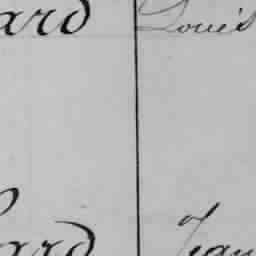 ard Louis
ard Jean